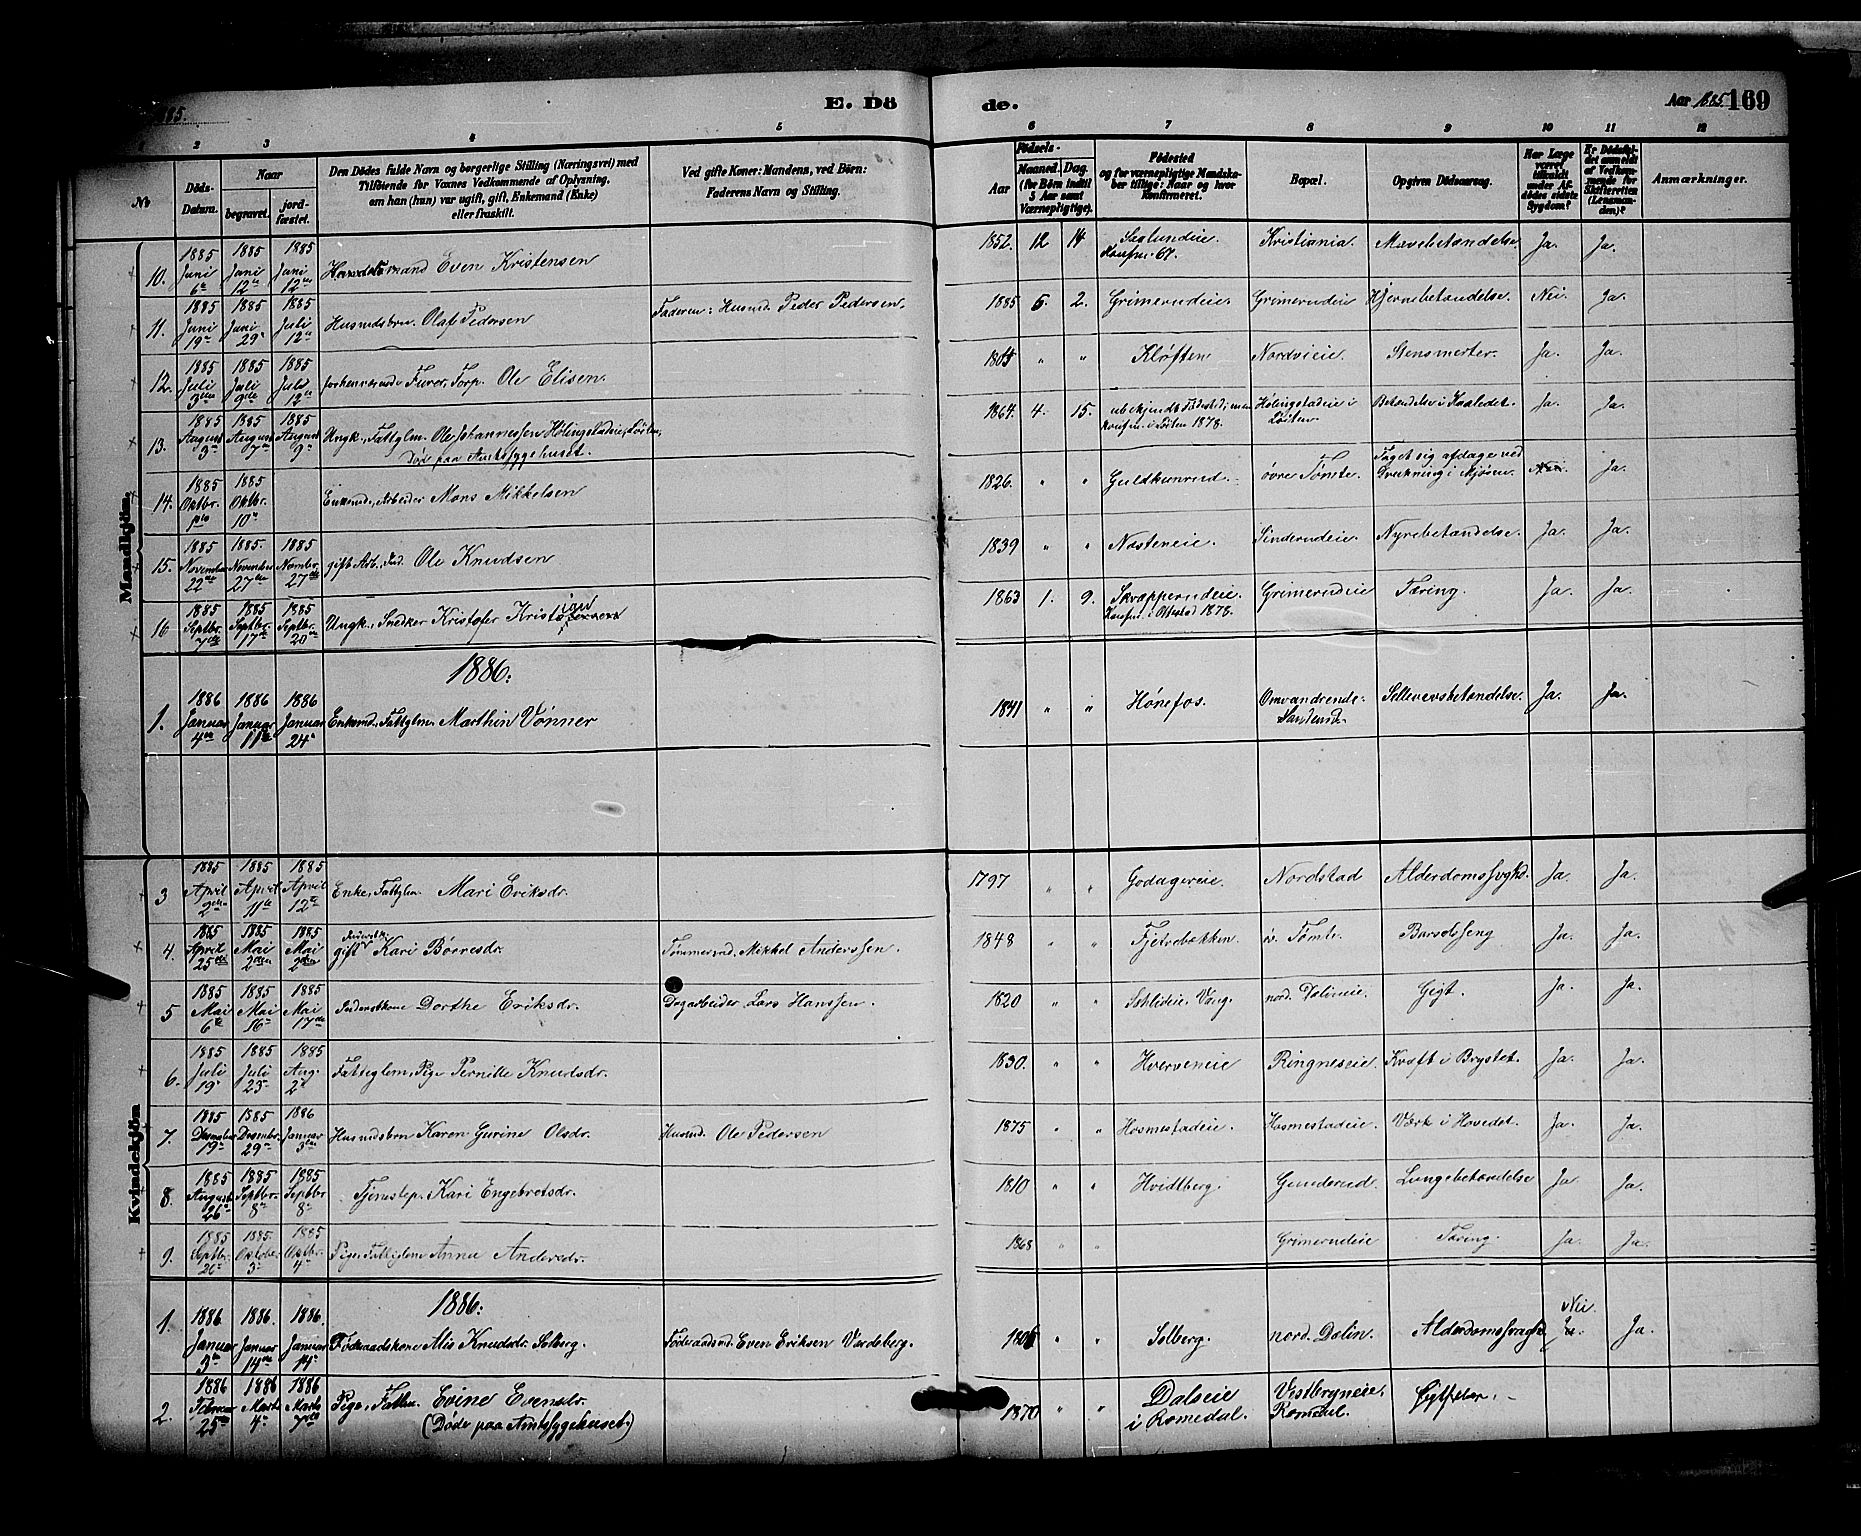 885.
E. Dö
de.
Aar 1885. 169
1 2 3 4 5 6 7 8 9 10 11 12
No
Döds-Datum.
Naar
begravet.
jord-fæstet.
Den Dödes fulde Navn og borgerlige Stilling (Næringsvei) med
Tilföiende for Voxnes Vedkommende af Oplysning,
om han (hun) var ugift, gift, Enkemand (Enke)
eller fraskilt.
Ved gifte Koner: Mandens, ved Börn:
Faderens Navn og Stilling.
Aar
Födsels-
Maaned. Dag.
(for Börn indtil
5 Aar samt
Værnepligtige).
Födested
og for værnepligtige Mandska-
ber tillige: Naar og hvor
Konfirmeret.
Bopæl.
Opgiven Dödsaarsag.
Har Læge
været
tilkaldt
under Af-
dödes sidste
Sygdom?
Er Dödsfal-
det anmeldt
af Vedkom-
mende for
Skifteretten
(Lensman-
den)?
Anmærkninger.
Mandkjön.
10. 1885 Juni 6te 1885 Juni 12te 1885 Juni 12te Handelsmand Even Kristensen 1852. 12 14 Saglundeie. Konfm. 67. Kristiania. Mavebetændelse. Ja. Ja.
11. 1885 Juni 19de 1885 Juni 29de 1885 Juli 12te Husmdsbrn. Olaf Pedersen Faderen: Husmd. Peder Pedersen. 1885 5. 2. Grimerudeie. Grimerudeie Hjernebetændelse. Nei. Ja.
12. 1885 Juli 3die 1885 Juli 9de 1885 Juli 12te Ole Elisen. " " Kløften Nordvieie. Stensmerter. Ja. Ja.
13. 1885 August 3die 1885 August 7de 1885 August 9de Ungk., Fattglm. Ole Johannessen Hølingstadeie, Løiten,
Død paa Amtssygehuset. 1864. 4. 15. ubekjendt Fødested; men konfm. i Løiten 1878. Hølingstadeie i Løiten Betændelse i Knæledet. Ja. Ja.
14. 1885 Oktbr. 1ste 1885 Oktbr. 10de Enkemd., Arbeider Mons Mikkelsen 1826. " " Guldkunrud. øvre Tømte. Taget sig afdage ved Drukning i Mjøsen. Nei. Ja.
15. 1885 November 22de 1885. November 27de 1885 Novmbr. 27de gift Arb., Ind. Ole Knudsen 1839 " " Næsteneie. Sinderudeie. Nyrebetændelse. Ja. Ja.
16 1885 Septbr. 7de 1885 Septbr. 17de 1885 Septbr. 20de Ungk., Snedker Kristofer Kristiansen 1863 1. 9. Skrapperudeie. Konfm. i Ottestad 1878. Grimerudeie Tæring. Ja. Ja.
1886:
1. 1886 Januar 4de 1886 Januar 11te 1886 Januar 24de Enkemd., Fattglm. Marthin Vønner 1841 " " Hønefos. Omvandrende. Ja. Ja.
Kvindekjön
3 1885 April 2den 1885 April 11te 1885 April 12te Enke, Fattglm. Mari Eriksdr. 1797 " " Godagereie. Nordstad Alderdomssvaghd. Ja. Ja.
4. 1885 April 25de 1885 Mai 2den 1885 Mai 2den gift Inderstk. Kari Børresdr. Tømmermd. Mikkel Anderssen. 1848 " " Fjetrebakken. ø. Tømte. Barselseng Ja. Ja.
5 1885 Mai 6te 1885 Mai 16de 1885 Mai 17de Inderstkone Dorthe Eriksdr. Dagarbeider Lars Hanssen. 1820 " " Sehlideie, Vang. nord. Dalineie. Gigt. Ja. Ja.
6. 1885 Juli 19de 1885 Juli 25de 1885 Aug. 2den Fattiglem, Pige Pernille Knudsdr. 1830. " " Hverveneie Ringneseie. Kræft i Brystet. Ja. Ja.
7. 1885 Desember 19de 1885 Desembr. 29de 1886 Januar 3die Husmdsbrn Karen Gurine Olsdr. Husmd. Ole Pedersen 1875 " " Hosmestadeie. Hosmestadeie. Værk i Hovedet. Ja. Ja.
8. 1885 August 26de 1885 Septbr. 8de 1885 Septbr 8de Tjenstep. Kari Engebretsdr. 1810 " " Hvidtberg. Gunderud. Lungebetændelse Ja. Ja.
9. 1885 Septbr. 26de 1885. Oktober 3die 1885 Oktbr. 4de Pige, Fattiglem Anna Andersdr. 1868 " " Grimerudeie Tæring. Ja. Ja.
1886:
1. 1886 Januar 5te 1886. Januar 14de 1886. Januar 14de Føderaadskone Alis Knudsdr. Solberg. Føderaadsmd. Even Eriksen Vardeberg. " " Solberg. nord. Dalin. Alderdomssvaghd Nei. Ja. Ja.
2. 1886 Februar 25de 1886 Marts 4de 1886 Marts 7de Pige, Fattlm. Evine Evensdr.
(Døde paa Amtssygehuset.) 1870 " " Dalseie i Romedal. Vestbryneie, Romedal.